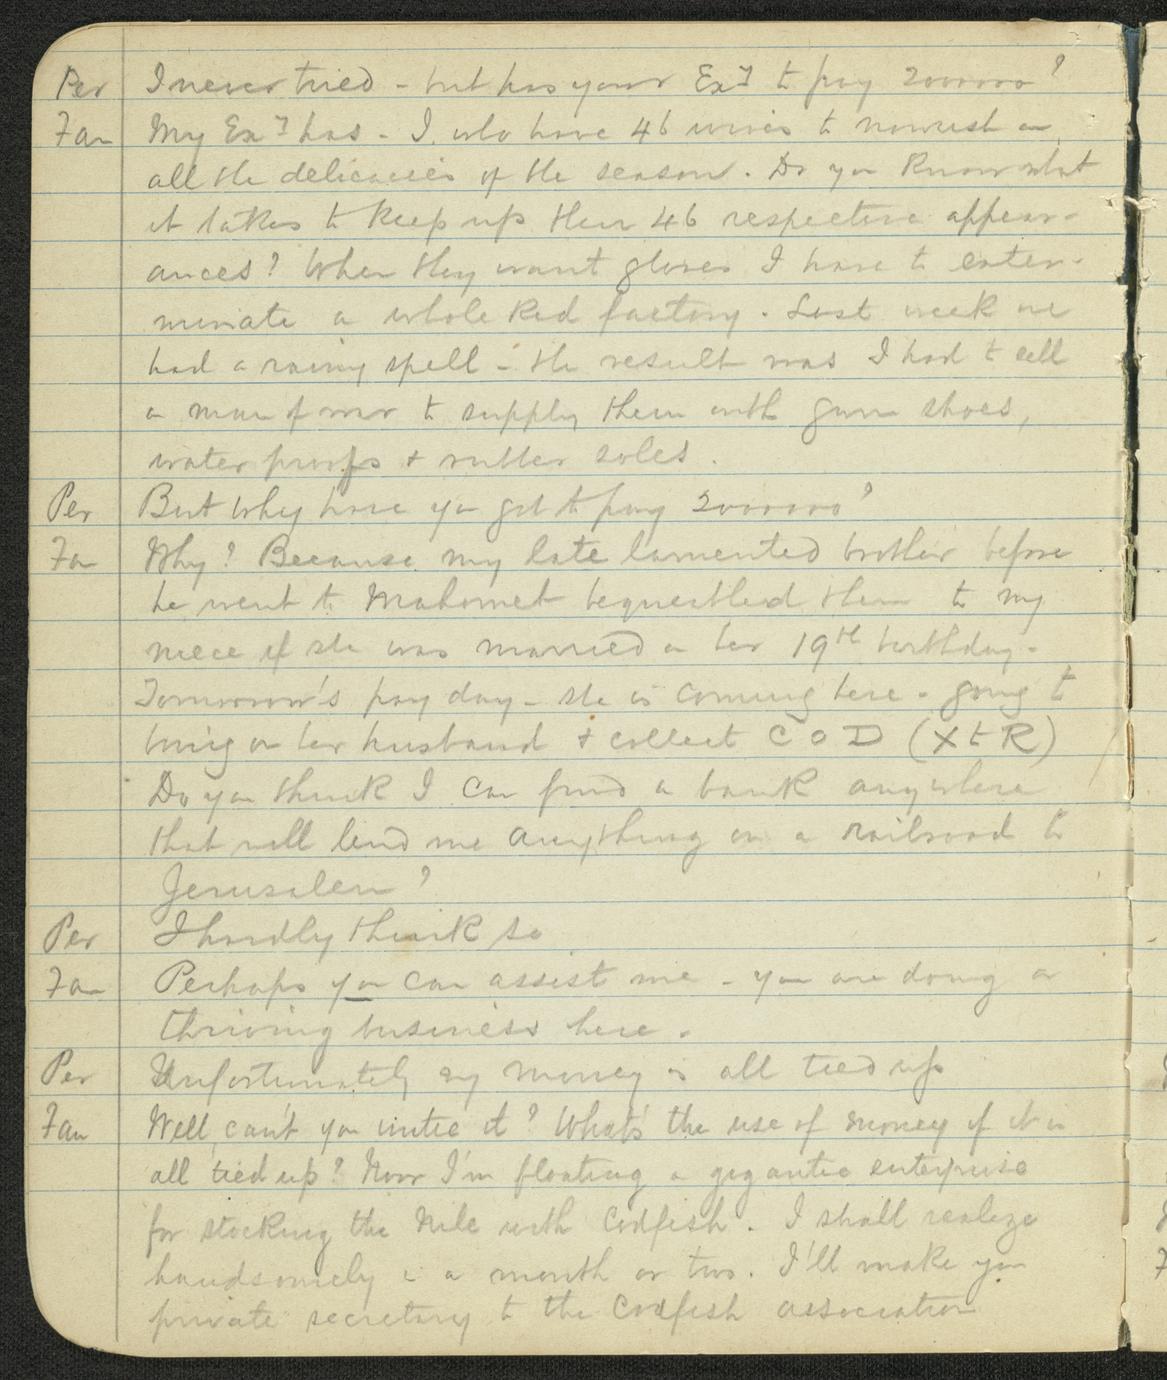 Per I never tried - but has your Exy to pay 2000000?
Fan My Exy has - I who have 46 wives to nourish on
all the delicacies of the season. Do you know what
it takes to keep up their 46 respective appear-
ances? When they want gloves I have to exter-
minate a whole Kid factory. Last week we
had a rainy spell - the result was I had to sell
a man of war to supply them with gum shoes,
water proofs + rubber soles.
Per But why have you got to pay 2000000?
Fa Why? Because my late lamented brother before
he went to Mahomet bequeathed them to my
niece if she was married on her 19th birthday.
Tomorrow's pay day - she is coming here - going to
bring on her husband + collect C O D (X to R)
Do you think I can find a bank anywhere
that will lend me anything on a railroad to
Jerusalem?
Per I hardly think so
Fan Perhaps you can assist me - you are doing a
thriving business here.
Per Unfortunately my money is all tied up
Fan Well, can't you untie it? What's the use of money if it is
all tied up? Now I'm floating a gigantic enterprise
for stocking the Nile with Codfish. I shall realize
handsomely in a month or two. I'll make you
private secretary to the Codfish association